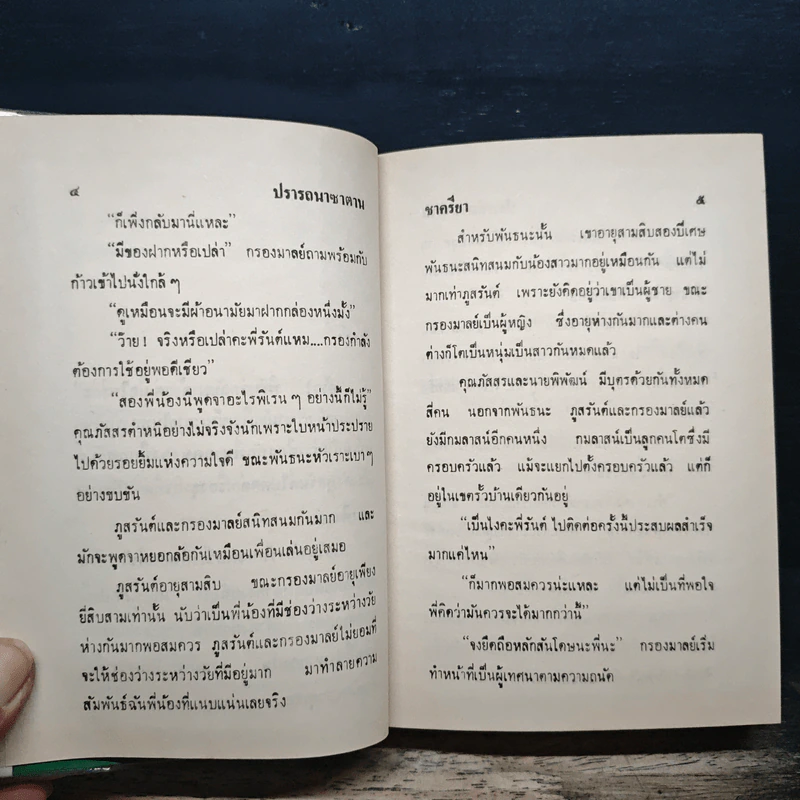 ๔
ปรารถนาซาตาน
“ก็เพิ่งกลับมานี่แหละ”
“มีของฝากหรือเปล่า” กรองมาลย์ถามพร้อมกับ
ก้าวเข้าไปนั่งใกล้ ๆ
“ดูเหมือนจะมีผ้าอนามัยมาฝากกล่องหนึ่งมั้ง”
“ว๊าย! จริงหรือเปล่าคะพี่รันต์แหม....กรองกำลัง
ต้องการใช้อยู่พอดีเชียว”
“สองพี่น้องนี่พูดจาอะไรพิเรน ๆ อย่างนี้ก็ไม่รู้”
คุณภัสสรตำหนิอย่างไม่จริงจังนักเพราะใบหน้าประปราย
ไปด้วยรอยยิ้มแห่งความใจดี ขณะพันธนะหัวเราะเบาๆ
อย่างขบขัน
ภูสรันต์และกรองมาลย์สนิทสนมกันมาก และ
มักจะพูดจาหยอกล้อกันเหมือนเพื่อนเล่นอยู่เสมอ
ภูสรันต์อายุสามสิบ ขณะกรองมาลย์อายุเพียง
ยี่สิบสามเท่านั้น นับว่าเป็นพี่น้องที่มีช่องว่างระหว่างวัย
ห่างกันมากพอสมควร ภูสรันต์และกรองมาลย์ไม่ยอมที่
จะให้ช่องว่างระหว่างวัยที่มีอยู่มาก มาทำลายความ
สัมพันธ์ฉันพี่น้องที่แนบแน่นเลยจริง
ชาครียา
๕
สำหรับพันธนะนั้น เขาอายุสามสิบสองปีเศษ
พันธนะสนิทสนมกับน้องสาวมากอยู่เหมือนกัน แต่ไม่
มากเท่าภูสรันต์ เพราะยังคิดอยู่ว่าเขาเป็นผู้ชาย ขณะ
กรองมาลย์เป็นผู้หญิง ซึ่งอายุห่างกันมากและต่างคน
ต่างก็โตเป็นหนุ่มเป็นสาวกันหมดแล้ว
คุณภัสสรและนายพิพัฒน์ มีบุตรด้วยกันทั้งหมด
สี่คน นอกจากพันธนะ ภูสรันต์และกรองมาลย์แล้ว
ยังมีกมลาสน์อีกคนหนึ่ง กมลาสน์เป็นลูกคนโตซึ่งมี
ครอบครัวแล้ว แม้จะแยกไปตั้งครอบครัวแล้ว แต่ก็
อยู่ในเขตรั้วบ้านเดียวกันอยู่
“เป็นไงคะพี่รันต์ ไปติดต่อครั้งนี้ประสบผลสำเร็จ
มากแค่ไหน”
“ก็มากพอสมควรน่ะแหละ แต่ไม่เป็นที่พอใจ
พี่คิดว่ามันควรจะได้มากกว่านี้”
“จงยึดถือหลักสันโดษนะพี่นะ” กรองมาลย์เริ่ม
ทำหน้าที่เป็นผู้เทศนาตามความถนัด